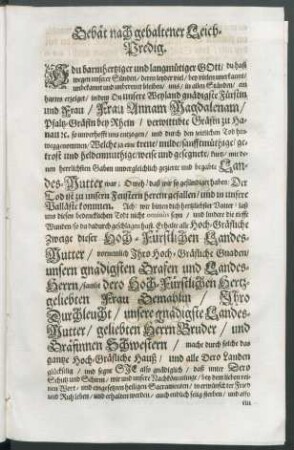 Gebät nach gehaltener Leich-
Predig.
O du barmhertziger und langmütiger GOtt / du hast
wegen unserer Sünden / deren leyder viel / bey vielen unerkannt /
unbekannt und unbereuet bleiben / uns / in allen Ständen /
harten erzeiget / indem Du Unsere Weyland gnädigste Fürstin
und Frau / Frau Annam Magdalenam /
Pfaltz-Gräfin bey Rhein / verwittibte Gräfin zu Ha-
nau ꝛc. so unverhofft uns entzogen / und durch den zeitlichen Tod hin-
weggenommen / Welche ja eine treue / milde / sanfftmüthige / ge-
trost und heldenmüthige / weise und gesegnete / mit de-
nen herrlichsten Gaben unvergleichlich gezierte und begabte Lan-
des-Mutter war: O weh / daß wir so gesündiget haben! Der
Tod ist zu unsern Fenstern herein gefallen / und in unsere
Palläste kommen. Ach! wir bitten dich hertzliebster Vatter / laß
uns diesen bedencklichen Todt nicht ominös seyn / und lindere die tieffe
Wunden so du dadurch geschlagen hast. Erhalte alle Hoch-Gräfliche
Zweige dieser Hoch-Fürstlichen Landes-
Mutter / vornemlich Ihro Hoch-Gräfliche Gnaden /
unsern gnädigsten Grafen und Landes-
Herrn / samt dero Hoch-Fürstlichen Hertz-
geliebten Frau Gemahlin / Ihro
Durchleucht / unsere gnädigste Landes-
Mutter / geliebten Herrn Bruder / und
Gräfinnen Schwestern / mache durch solche das
gantze Hoch-Gräfliche Hauß / und alle Dero Landen
glückselig / und segne SIE also gnädiglich / daß unter Dero
Schutz und Schirm / wir und unsere Nachkömmlinge / bey dem lieben rei-
nen Wort / und eingesetzten heiligen Sacramenten / in erwünschter Fried
und Ruh leben / und erhalten werden / auch endlich selig sterben / und